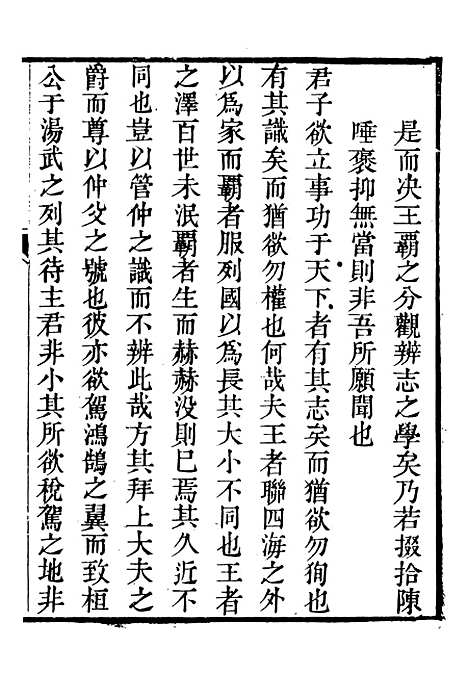 是而决王霸之分觀辨志之學矣乃若掇拾陳
唾褒抑無當則非吾所願聞也
君子欲立事功于天下者有其志矣而猶欲勿徇也
有其識矣而猶欲勿權也何哉夫王者聯四海之外
以爲家而霸者服列國以爲長其大小不同也王者
之澤百世未泯霸者生而赫赫没則巳焉其久近不
同也豈以管仲之識而不辨此哉方其拜上大夫之
爵而尊以仲父之號也彼亦欲駕鴻鵠之翼而致桓
公于湯武之列其待主君非小其所欲稅駕之地非